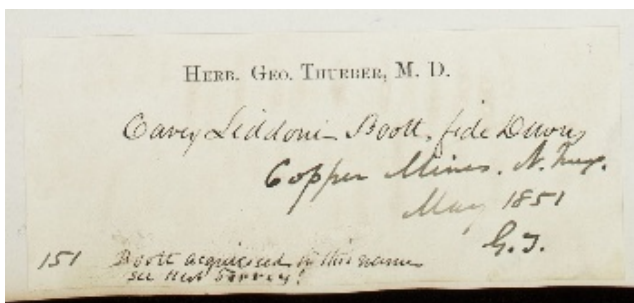 HERB. GEO. THURBER, M. D.
Carex Liddoni Boott, fide Dewey
Copper Mines. N. Mex.
May 1851
G. T.
151 Boott acquiesced in this name
see Herb Torrey!